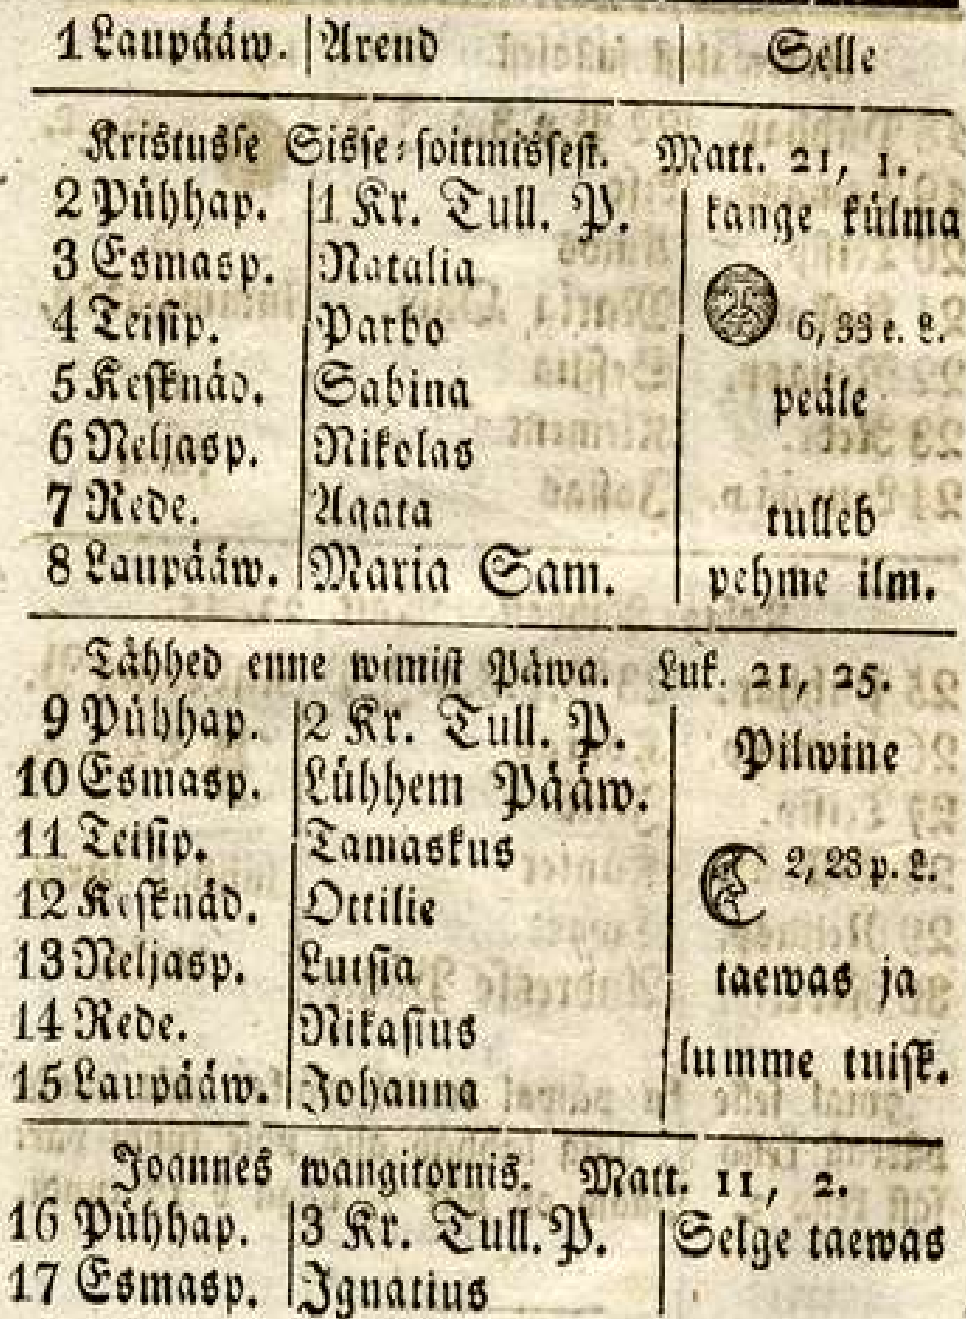 1 Laupääw. Arend Selle
Kristusse Sisse-soitmissest. Matt. 21, 1.
2 Pühhap. 1 Kr. Tull. P. kange külma
3 Esmasp. Natalia
4 Teisip. Parbo 6, 33 e. L.
5 Kesknäd. Sabina peäle
6 Neljasp. Nikolas
7 Rede. Agata tulleb
8 Laupääw. Maria Sam. pehme ilm.
Tähhed enne wimist Päwa. Luk. 21, 25.
9 Pühhap. 2 Kr. Tull. P. Pilwine
10 Esmasp. Lühhem Pääw.
11 Teisip. Tamaskus 2, 23 p. L.
12 Kesknäd. Ottilie
13 Neljasp. Lutsia taewas ja
14 Rede. Nikasius
15 Laupääw. Johanna lumme tuisk.
Joannes wangitornis. Matt. 11, 2.
16 Pühhap. 3 Kr. Tull. P. Selge taewas
17 Esmasp. Ignatius